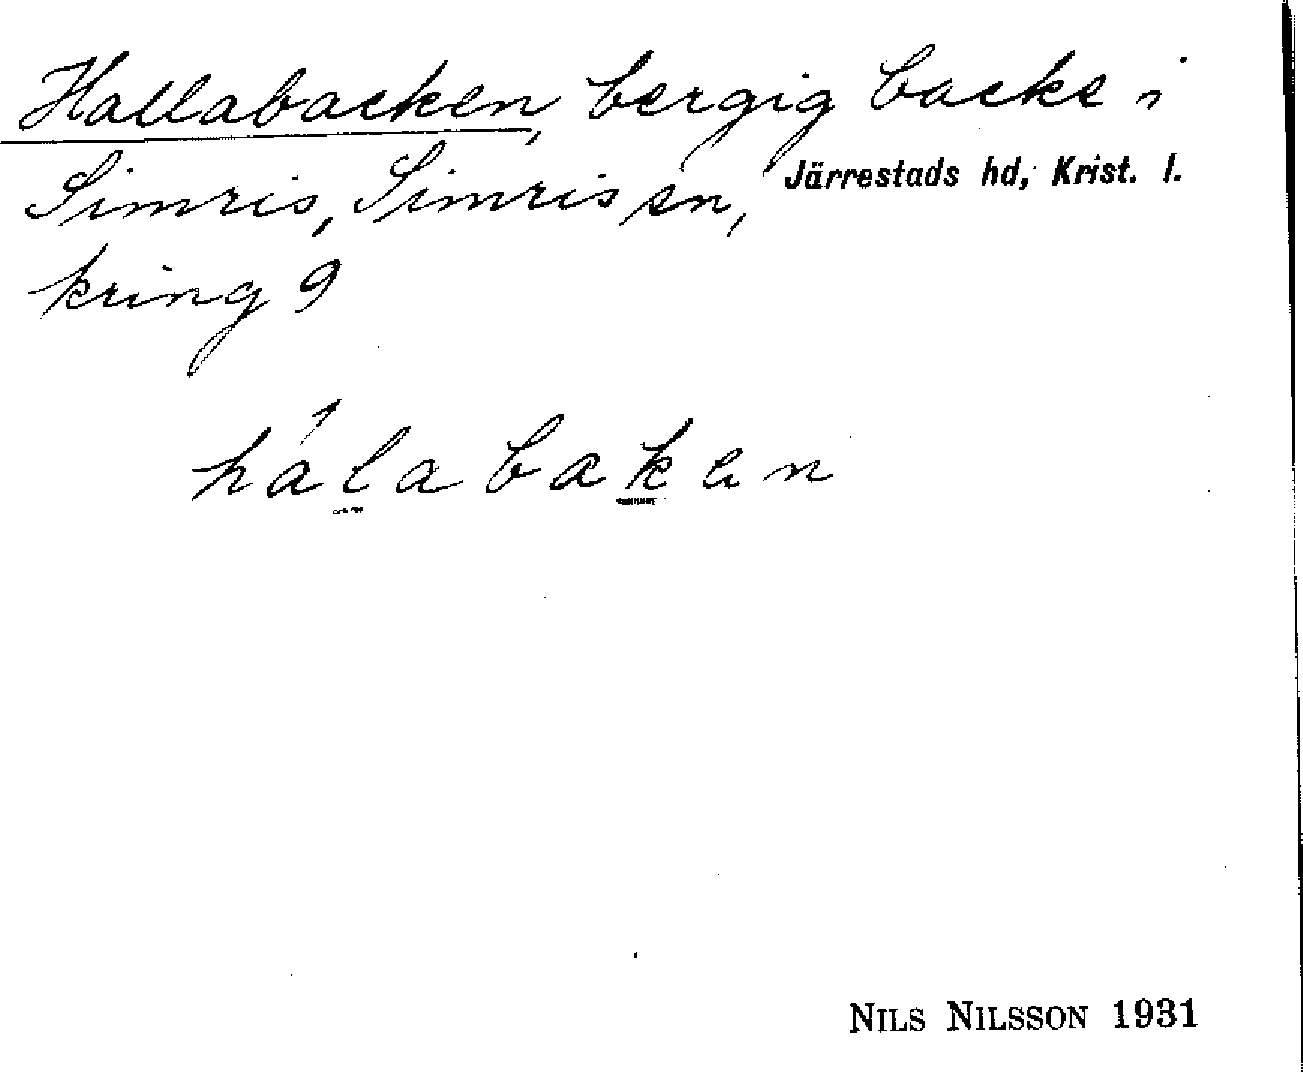 Hallabacken, bergig backe i
Simris, Simris sn, Järrestads hd, Krist. l.
kring 9
hálabaken
NILS NILSSON 1931